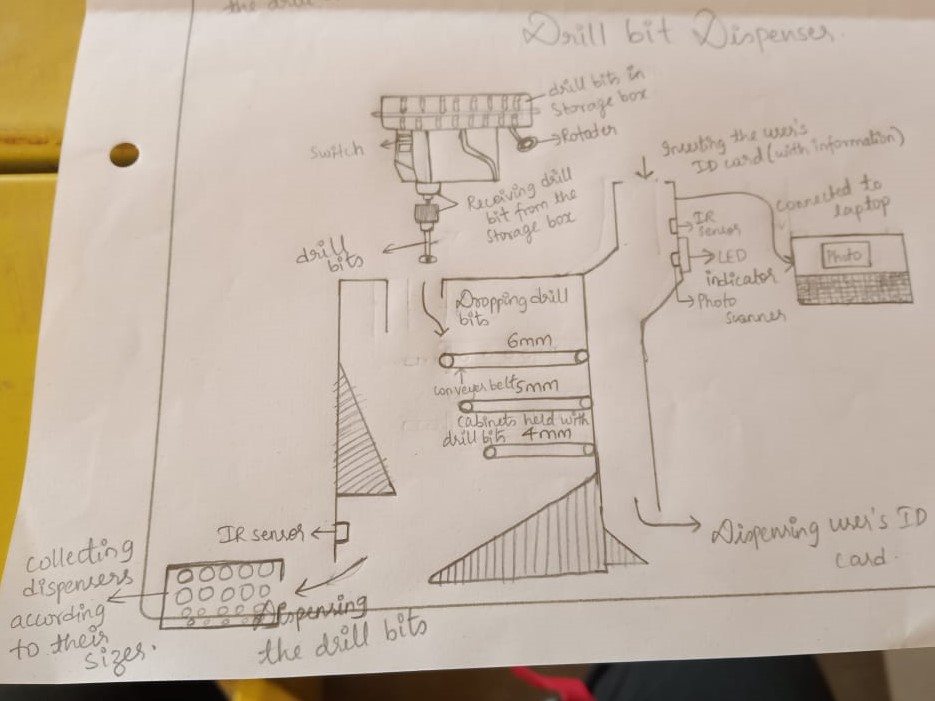 the drill
Drill bit Dispenser.
drill bits in
storage box
Rotader
Switch
Receiving drill
bit from the
storage box
drill
bits
Inserting the user's
ID card (with information)
connected to
laptop
IR
sensor
LED
indicator
Photo
scanner
Photo
Dropping drill
bits
6mm
conveyer belt
5mm
Cabinets held with
drill bits
4mm
IR sensor
Dispensing user's ID
card.
collecting
dispensers
according
to their
sizes.
Dispensing
the drill bits